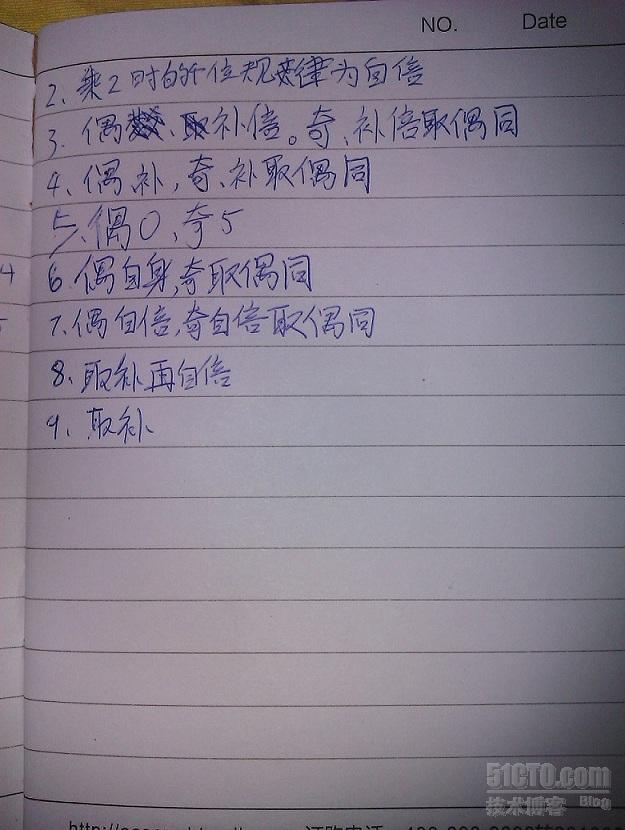 NO. Date
2、乘2时的个位规律为自倍
3、偶、补倍。奇、补倍取偶同
4、偶补,奇、补取偶同
5、偶0、奇5
6.偶自身,奇取偶同
7.偶自倍,奇自倍取偶同
8、取补再自倍
9、取补
51CTO.com
技术博客 Blog